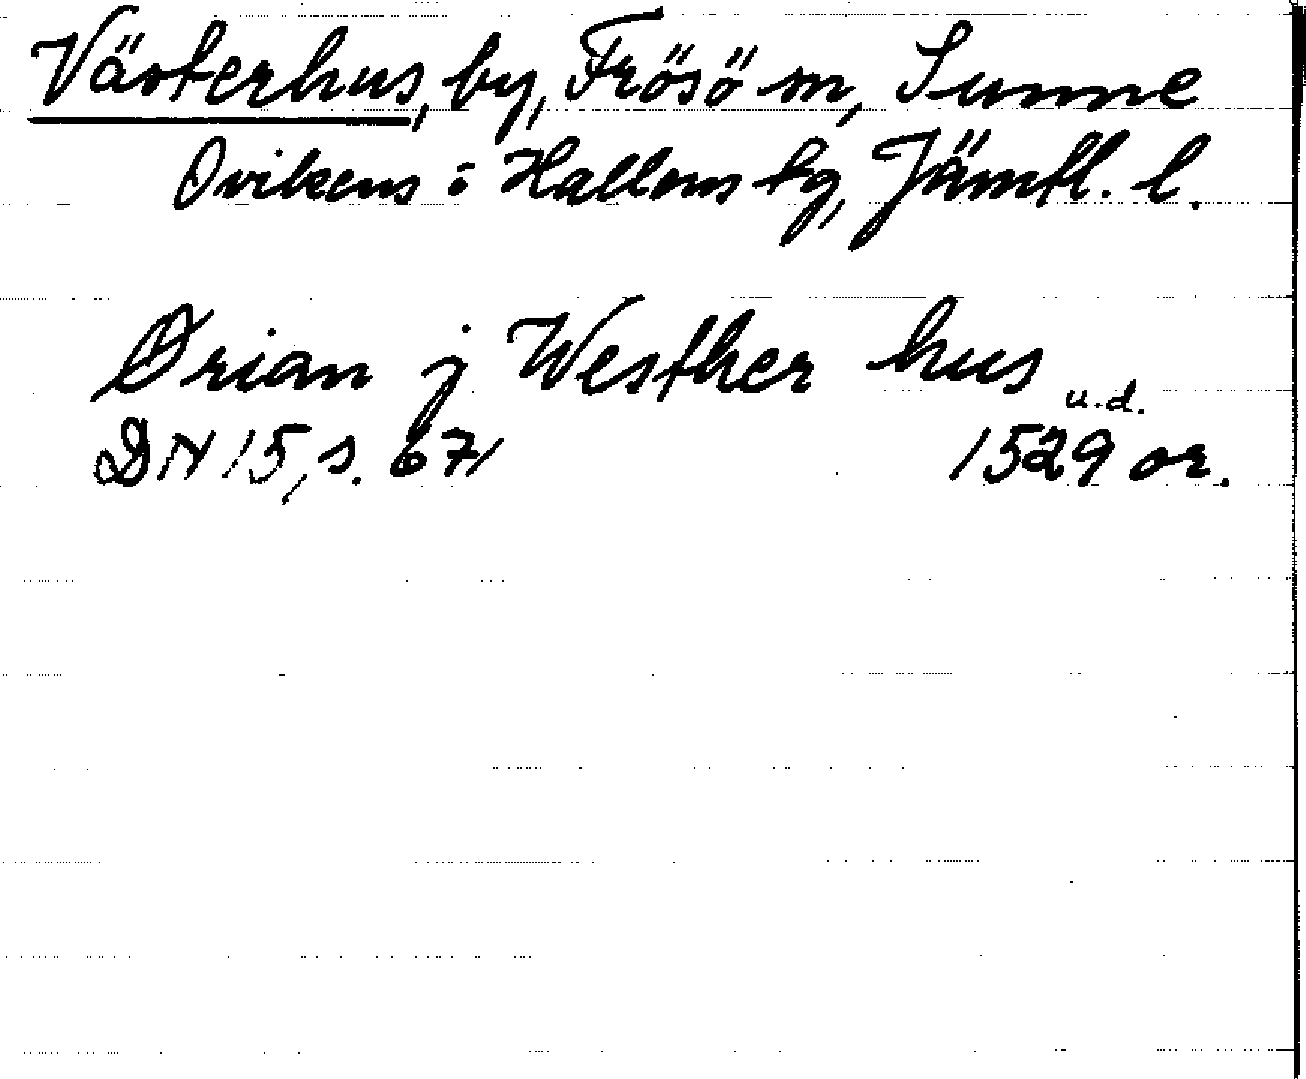 Västerhus, by, Frösö sn, Sunne
Ovikens o Hallens tg, Jämtl. l.
Ørian j Westher hus
u.d.
DN 15, s. 671 1529 or.